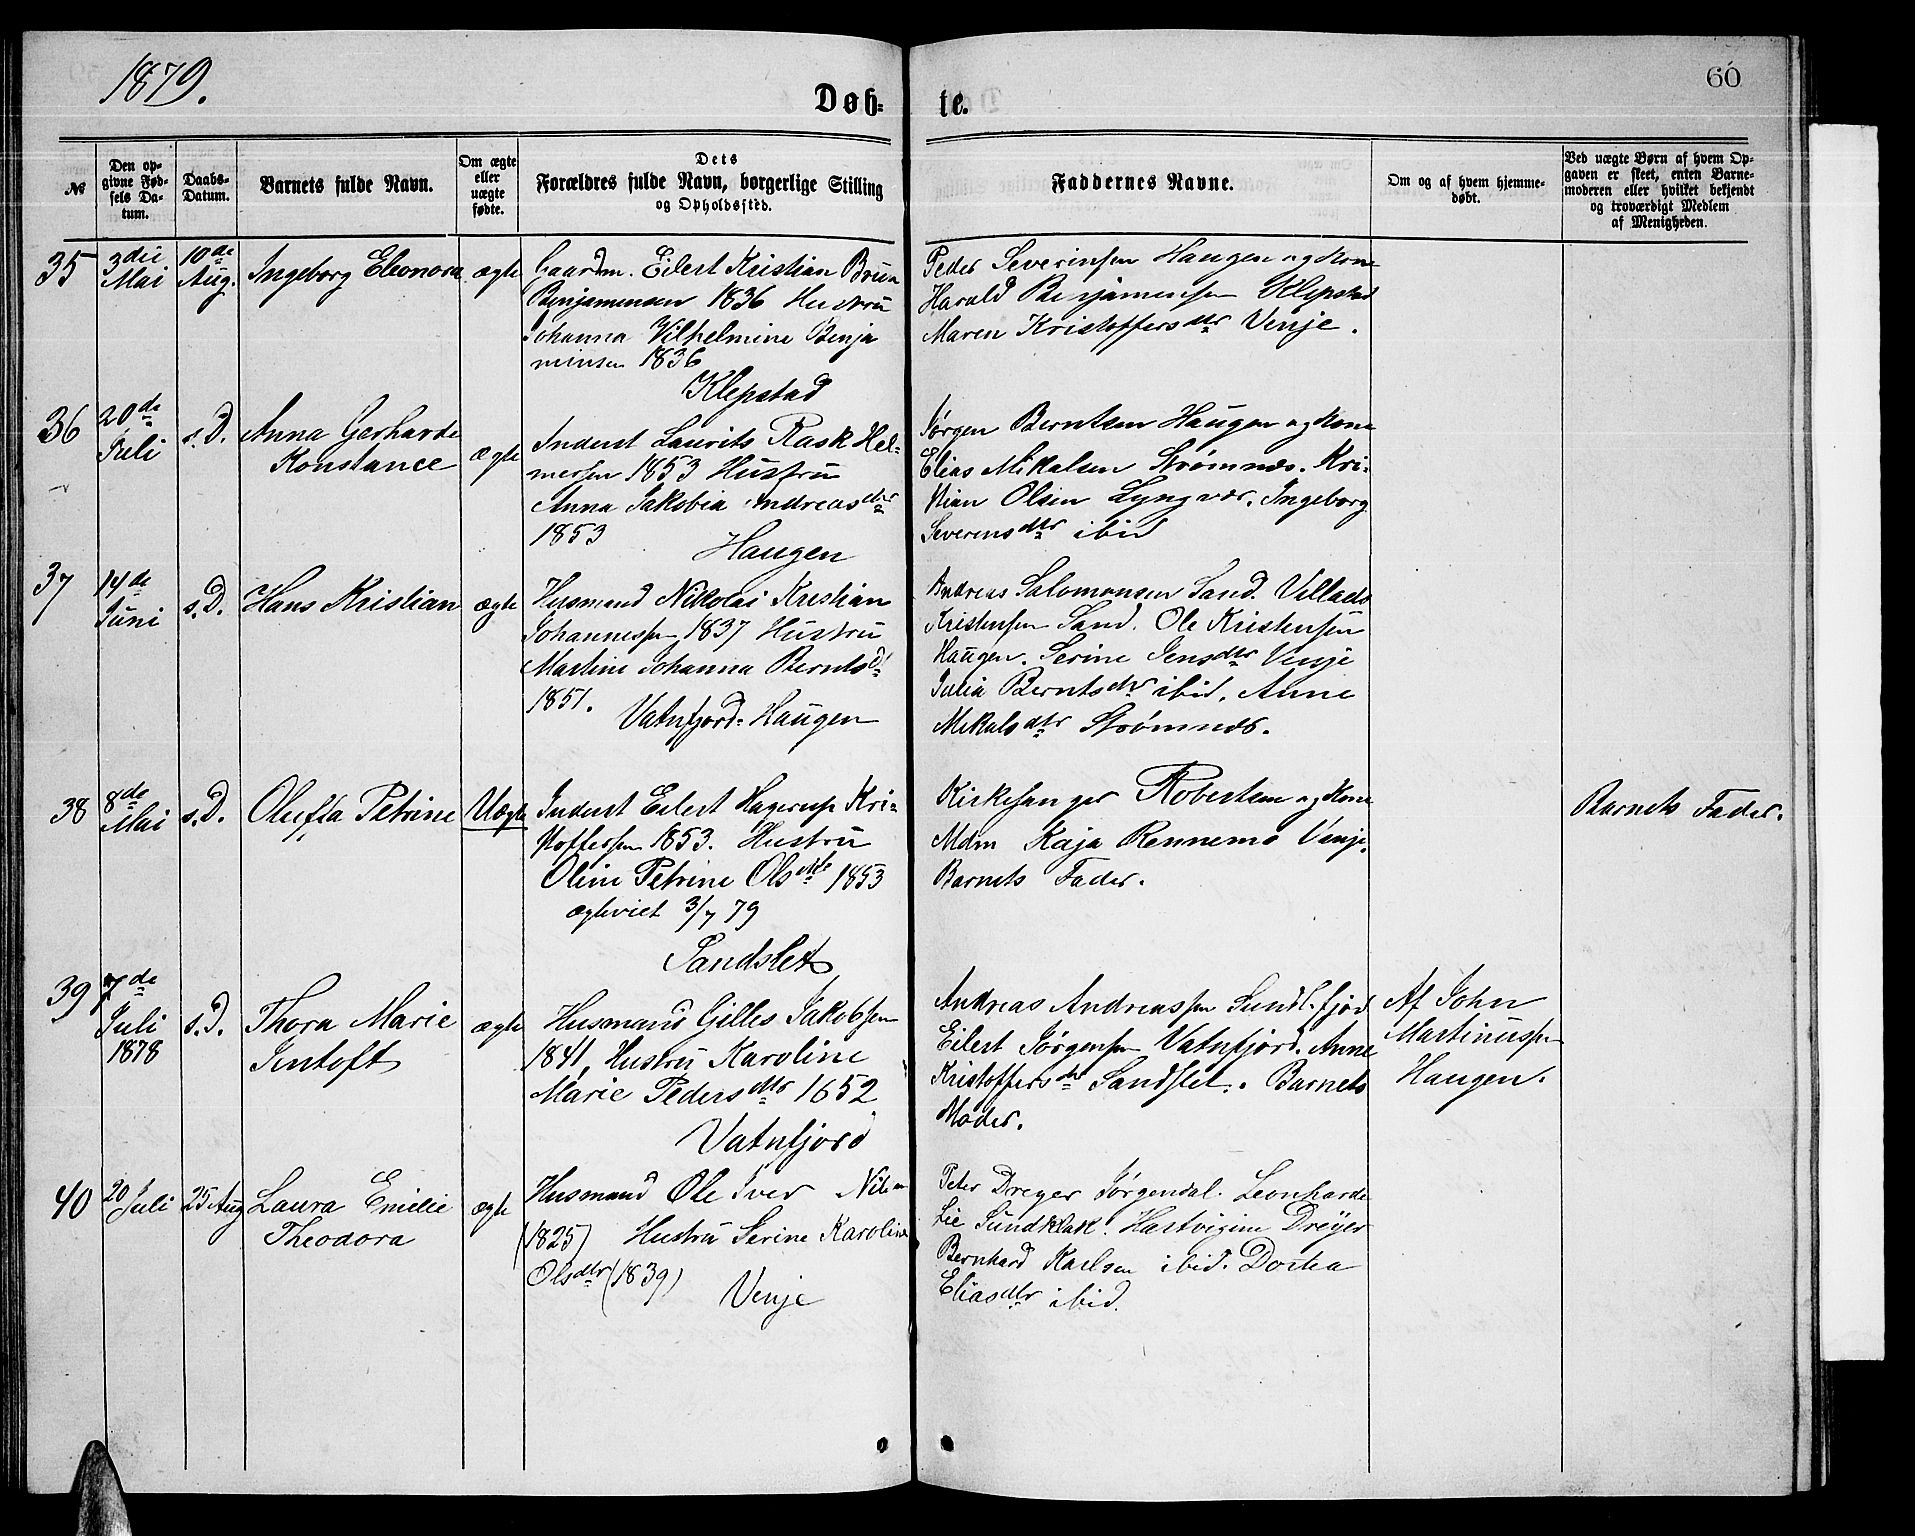 1879.
60
Døb-
te.
№
Den op-
givne Fød-
sels Da-
tum.
Daabs-
Datum.
Barnets fulde Navn.
Om ægte
eller
uægte
fødte.
Dets
Forældres fulde Navn, borgerlige Stilling
og Opholdssted.
Faddernes Navne.
Om og af hvem hjemme-
døbt.
Ved uægte Børn af hvem Op-
gaven er skeet, enten Barne-
moderen eller hvilket bekjendt
og troværdigt Medlem
af Menigheden.
35
3die
Mai
10de
Aug.
Ingeborg Eleonora
ægte
Gaardm. Eilert Kristian Brun
Benjamensen 1836 Hustru
Johanna Vilhelmine Benja
minsen 1836
Klepstad
Peder Severinsen Haugen og Kone
Harald Benjamensen Klepstad
Maren Kristoffersdtr Venje.
36
20de
Juli
s.D.
Anna Gerharde
Konstance
ægte
Inderst Laurits Rask Hel-
mersen 1853 Hustru
Anna Jakobia Andreasdtr
1853
Haugen
Jørgen Berntsen Haugen og Kone
Elias Mikalsen Strømnæs. Kri-
stian Olsen Lyngvær. Ingeborg
Severensdtr ibid
37
14de
Juni
s.D.
Hans Kristian
ægte
Husmand Nikolai Kristian
Johannessen 1837 Hustru
Martine Johanna Berntsd
1851.
Vatnfjord-Haugen
Andreas Salomonsen Sand. Villads
Kristensen Sand. Ole Kristensen
Haugen. Serine Jensdtr Venje
Julia Berntsdtr ibid. Anne
Mikalsdtr Strømnæs.
38
8de
Mai
s.D.
Oluffa Petrine
Uægte
Inderst Eilert Hagerup Kri-
stoffersen 1853. Hustru
Oline Petrine Olsdtr 1853
ægteviet 3/7 79
Sandslet
Kirkesanger Robertsen og Kone
Mdm Kaja Rennemo Venje.
Barnets Fader.
Barnets Fader.
39
7de
Juli
1878
s.D.
Thora Marie
Jentoft
ægte
Husmand Gilles Jakobsen
1841, Hustru Karoline
Marie Pedersdtr 1852
Vatnfjord
Andreas Andreassen Sundl.fjord
Eilert Jørgensen Vatnfjord. Anne
Kristoffersdtr Sandslet. Barnets
Moder.
Af John
Martinussen
Haugen.
40
20
Juli
25 Aug
Laura Emelie
Theodora
ægte
Husmand Ole Iver Nilsen
(1825) Hustru Serine Karoline
Olsdtr (1839)
Venje
Peter Dreyer Jørgendal. Leonharde
Lie Sundklak. Hartvigine Dreyer
Bernhard Karlsen ibid. Dortea
Eliasdtr ibid.